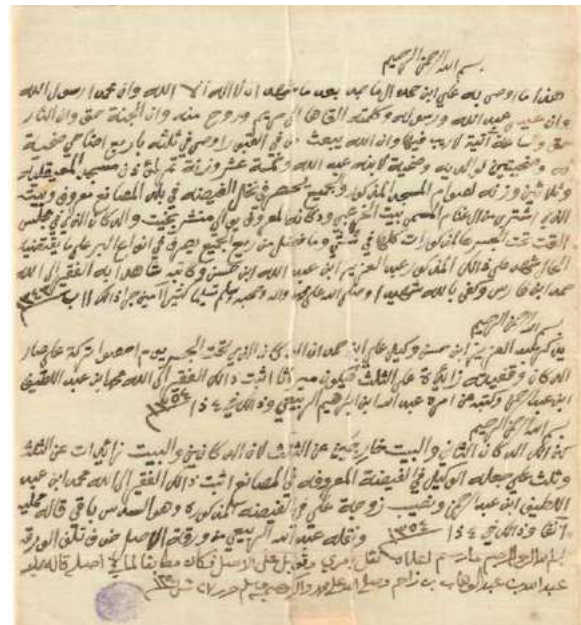 بسم الله الرحمن الرحيم
هذا ما اوصى به علي ابن حمد الماجد بعد ما شهد ان لا اله الا الله وان محمد ارسول الله
وان عيسى عبد الله ورسوله وكلمته القاها الى مريم وروح منه وان الجنة حق وان النار
حق والساعة آتية لا ريب فيها وان الله يبعث من في القبور اوصى في ثلثه باربع اضاحي ضحية
له وضحيتين لوالديه وضحية لابنه عبد الله وخمسة عشر وزنة تمر لمؤذن مسجد
وثلاثين وزنه لصوام المسجد المذكور والجميع في نخل الفيضه في بلد المصانع معروف وبيته
الذي اشترى من الغنام المسمى بيت ودكانه المعروف والدكان الذي في مجلس
القت تحت الجسر المذكورات كلها في ثلثي وما فضل من ريع الجميع يصرف في انواع البر على ما يقتضيه
الحال شهد على ذالك المذكور عبد العزيز ابن عبد الله ابن حسن وكاتبه شاهدا به الفقير الى الله
حمد ابن فارس وكفى بالله شهيدا وصلى الله على محمد واله وصحبه وسلم تسليما كثيرا آمين جرا ذالك
بسم الله الرحمن الرحيم
يذكر عبد العزيز ابن حسن وكيل علي ابن حمد ان الدكان الذي تحت الجسر يوم احصوا تركة علي صار
الدكان وقضيته زائدة على الثلث فيكون ميراثا اثبت ذالك الفقير الى الله محمد ابن عبد اللطيف
ابن عبد الرحمن وكتبه عن امره عبد الله ابن ابراهيم الربيعي وذالك في ١٣٥٤
بسم الله الرحمن الرحيم
كذالك الدكان الثاني والبيت خارجين عن الثلث لان الدكانين والبيت زائدات عن الثلث
وثلث علي جعله الوكيل في الفيضة المعروفه في المصانع اثبت ذالك الفقير الى الله محمد ابن عبد
اللطيف ابن عبد الرحمن ونصيب زوجة علي في الفيضه المذكوره وهو السدس باقي قاله ممليه
آنفا وذالك في ١٣٥٤ ونقله عبد الله الربيعي من ورقة الاصل خوف تلف الورقه
بسم الله الرحمن الرحيم ما رسم اعلاه نقل بامري وقوبل على الاصل فكان مطابقا لما في اصله قاله ممليه
عبد الله بن عبد الوهاب بن زاحم وصلى الله على محمد وآله وصحبه وسلم حرر ٢٧